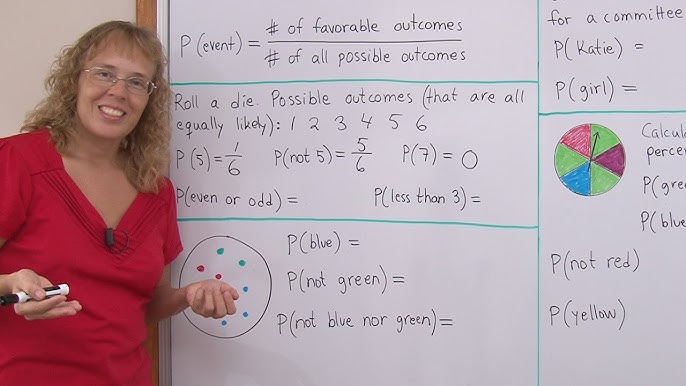 P (event) = # of favorable outcomes
# of all possible outcomes
Roll a die. Possible outcomes (that are all
equally likely): 1 2 3 4 5 6
P (5) = 1/6 P(not 5) = 5/6 P(7) = 0
P(even or odd) = P(less than 3) =
P(blue) =
P(not green) =
P(not blue nor green) =
for a committee
P( Katie) =
P(girl) =
Calcu
percen
P(gree
P(blue
P(not red)
P(yellow)